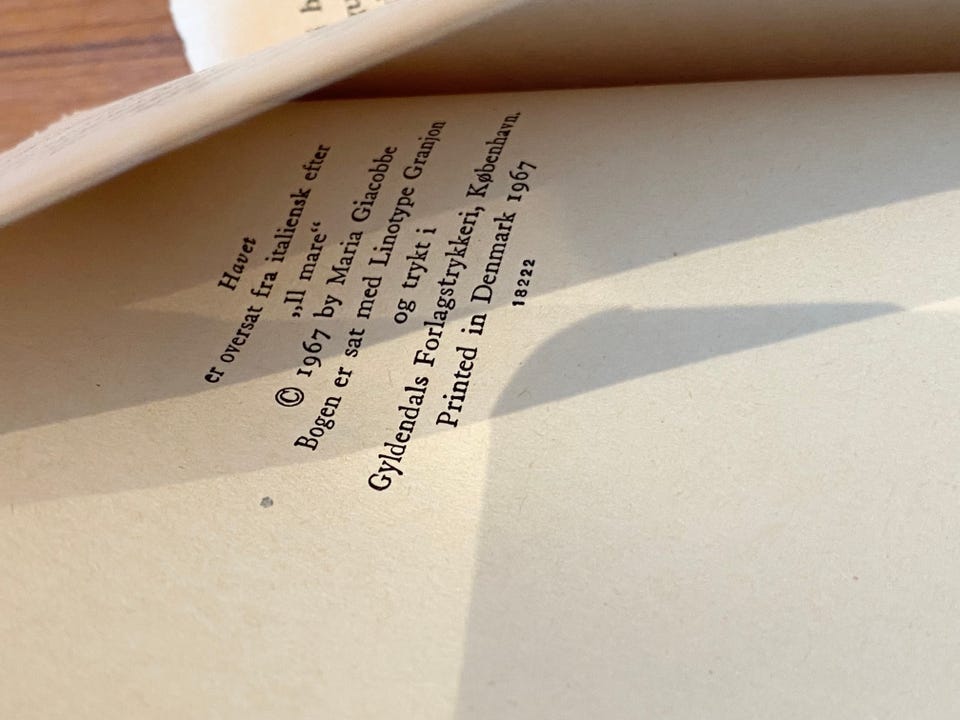 Havet
er oversat fra italiensk efter
„Il mare“
© 1967 by Maria Giacobbe
Bogen er sat med Linotype Granjon
og trykt i
Gyldendals Forlagstrykkeri, København.
Printed in Denmark 1967
18222